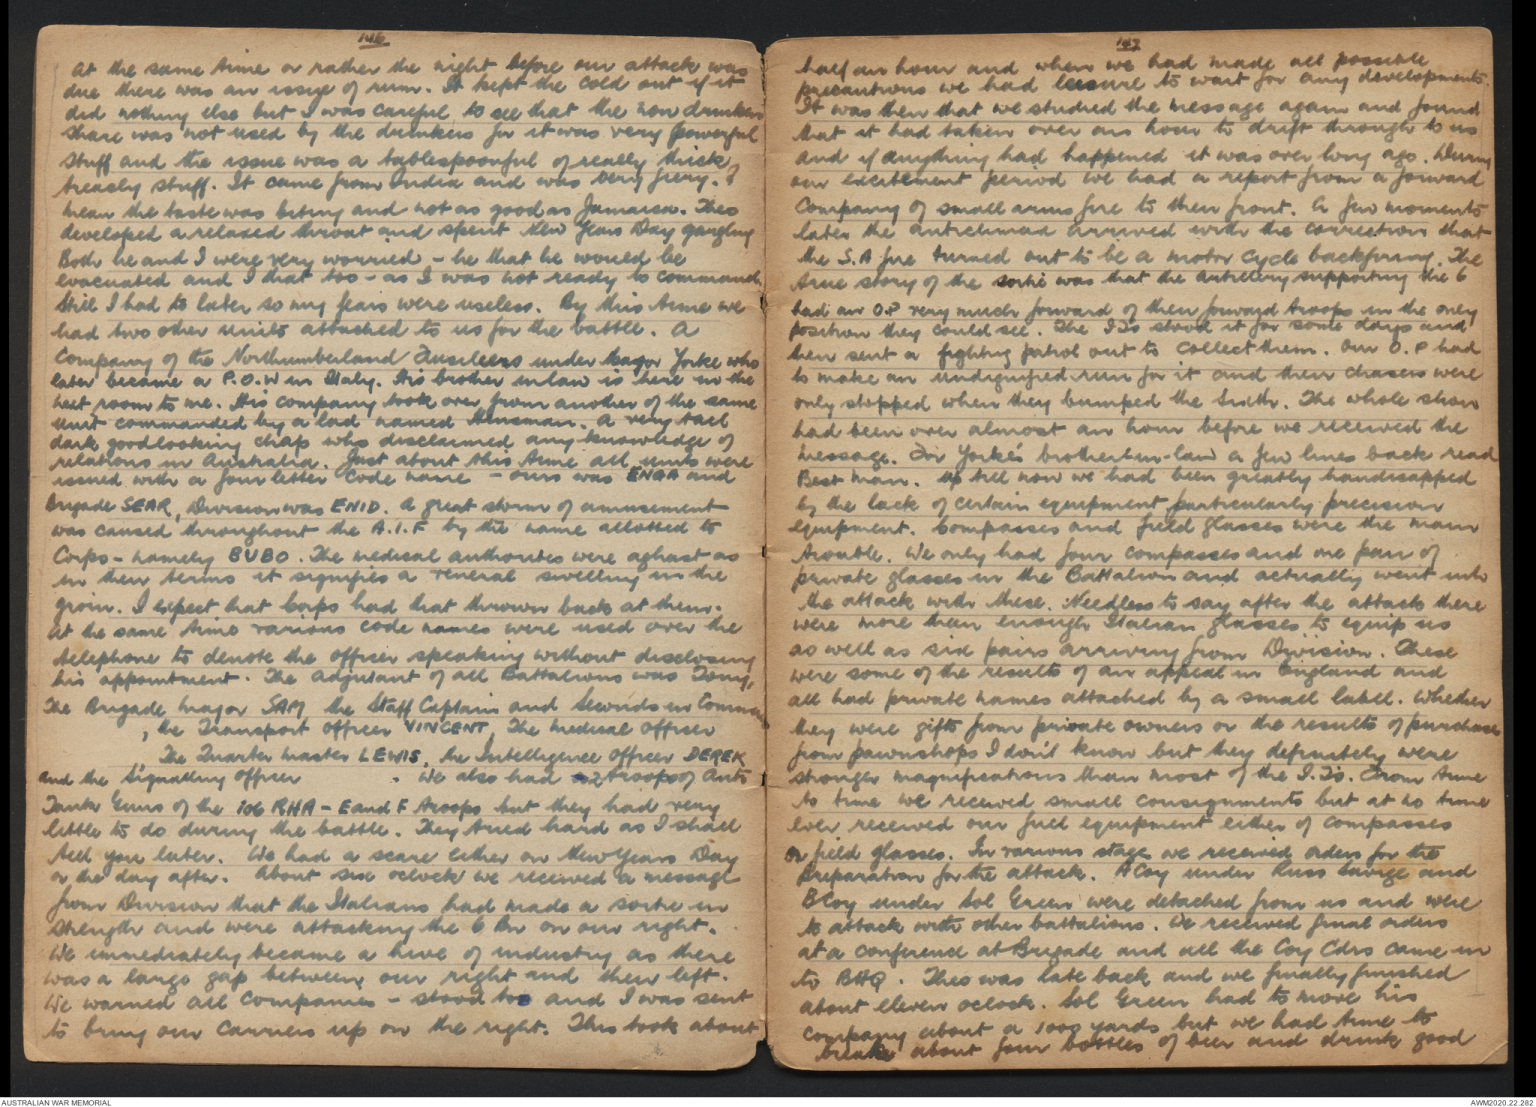 146
At the same time or rather the night before our attack was
due there was an issue of rum. It kept the cold out if it
did nothing else but I was careful to see that the non drinkers
share was not used by the drinkers for it was very powerful
stuff and the issue was a tablespoonful of really thick
treacly stuff. It came from India and was very fiery. I
mean the taste was biting and not as good as Jamaica. Theo
developed a relaxed throat and spent New Years Day gargling
Both he and I were very worried - he that he would be
evacuated and I that too - as I was not ready to command
Still I had to later so my fears were useless. By this time we
had two other units attached to us for the battle. A
Company of the Northumberland Fusileers under Major Yorke who
later became a P.O.W in Italy. His brother in law is here in the
next room to me. His company took over from another of the same
unit commanded by a lad named Hensman. A very tall
dark goodlooking chap who disclaimed any knowledge of
relations in Australia. Just about this time all units were
issued with a four letter Code name - ours was ENAA and
Brigade SEAR, Division was ENID. A great storm of amusement
was caused throughout the A.I.F by the name allotted to
Corps - namely BUBO. The medical authorites were aghast as
in their terms it signifies a veneral swelling in the
groin. I expect that Corps had that thrown back at them.
At the same time various code names were used over the
telephone to denote the officer speaking without disclosing
his appointment. The adjutant of all Battalions was Tony,
The Brigade Major SAM the Staff Captain and Seconds in Command
, the Transport officer VINCENT, The medical officer
The Quarter master LEWIS, the Intelligence Officer DEREK
and the Signalling Officer . We also had 2 troops of Anti
Tank Guns of the 106 RHA - E and F troops but they had very
little to do during the battle. They tried hard as I shall
tell you later. We had a scare either on New Years Day
or the day after. About six oclock we received a message
from Division that the Italians had made a sortie in
strength and were attacking the 6 Bn on our right.
We immediately became a hive of industry as there
was a large gap between our right and their left.
We warned all Companies - stood too and I was sent
to bring our Carriers up on the right. This took about
147
half an hour and when we had made all possible
precautions we had leisure to wait for any developments.
It was then that we studied the message again and found
that it had taken over an hour to drift through to us
and if anything had happened it was over long ago. During
our excitement period we had a report from a forward
Company of small arms fire to their front. A few moments
later the anticlimax arrived with the correction that
the S.A fire turned out to be a motor cycle backfiring. The
true story of the sortie was that the artillery supporting the 6
had an O.P very much forward of their forward troops in the only
position they could see. The I Is stood it for some days and
then sent a fighting patrol out to collect them. Our O.P had
to make an undignified run for it and their chasers were
only stopped when they bumped the Sixth. The whole show
had been over almost an hour before we received the
message. For Yorke's brother-in-law a few lines back read
Best man. Up till now we had been greatly handicapped
by the lack of certain equipment particularly precision
equipment. Compasses and field glasses were the main
trouble. We only had four compasses and one pair of
private glasses in the Battalion and actually went into
the attack with these. Needless to say after the attack there
were more than enough Italian glasses to equip us
as well as six pairs arriving from Division. These
were some of the results of an appeal in England and
all had private names attached by a small label. Whether
they were gifts from private owners or the results of purchases
from pawnshops I don't know but they definately were
stronger magnifications than most of the I.Is. From time
to time we received small consignments but at no time
ever received our full equipment either of compasses
or field glasses. In various stages we received orders for the
preparation for the attack. A Coy under Russ Savige and
B Coy under Sol Green were detached from us and were
to attack with other battalions. We received final orders
at a conference at Brigade and all the Coy Cdrs came in
to BHQ. Theo was late back and we finally finished
about eleven oclock. Sol Green had to move his
company about a 1000 yards but we had time to
break about four bottles of beer and drink good
AUSTRALIAN WAR MEMORIAL
AWM2020.22.282